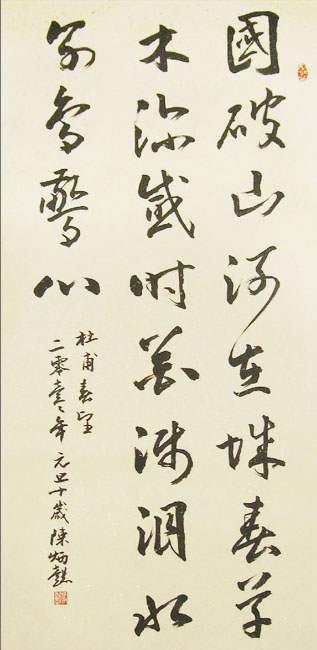 國破山河在城春草
木深感时花濺泪恨
别鳥驚心
杜甫春望
二零壹〻年元旦十歲陳炳懿